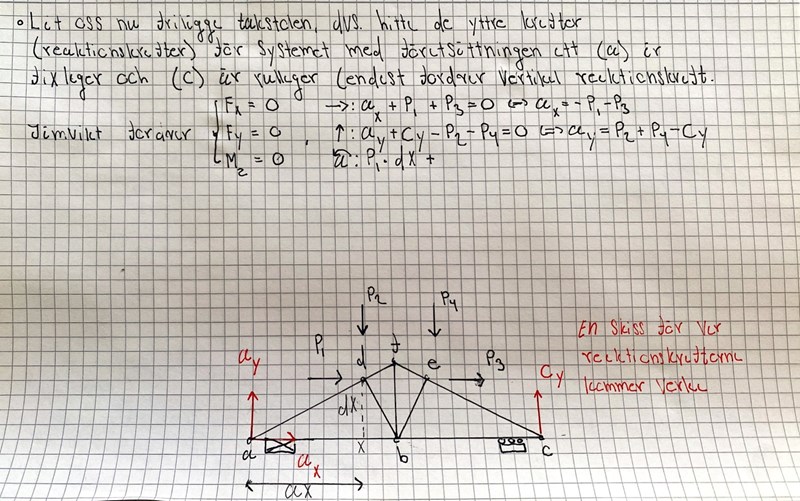 • Låt oss nu frilägga takstolen, dvs. hitta de yttre krafter
(reaktionskrafter) för systemet med förutsättningen att (a) är
fixlager och (c) är rullager (endast fordrar vertikal reaktionskraft.
Jämvikt fordrar { Fx = 0 →: ax + P1 + P3 = 0 ⇔ ax = -P1 - P3
Fy = 0 , ↑: ay + Cy - P2 - P4 = 0 ⇔ ay = P2 + P4 - Cy
Mz = 0 a: P1 · dx +
P2 P4
P1 d f e P3
ay Cy
dx
a ax x b c
ax
En skiss för var
reaktionskrafterna
kommer verka